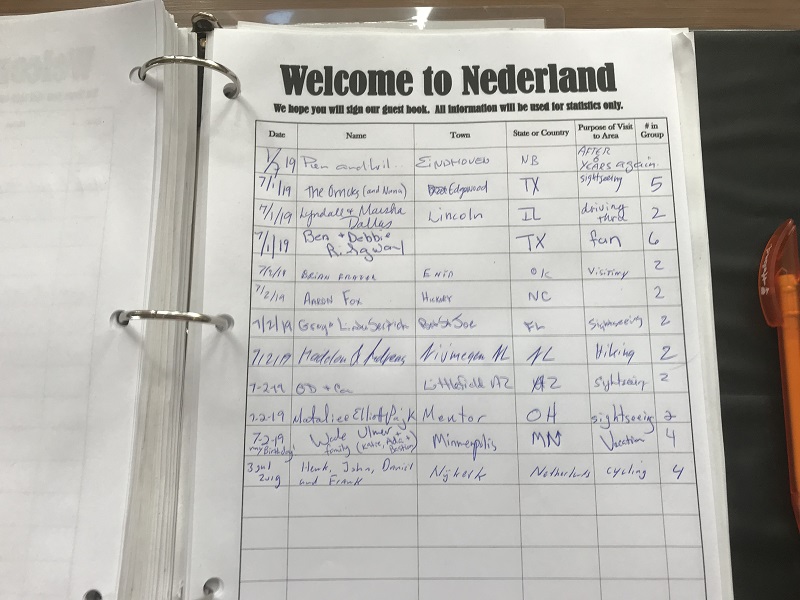 Welcome to Nederland
We hope you will sign our guest book. All information will be used for statistics only.
Date Name Town State or Country Purpose of Visit to Area # in Group
1/7 19 Pien and Wil... EINDHOVEN NB AFTER 8 YEARS again
7/1/19 The (and Nana) Edgewood TX sightseeing 5
7/1/19 Lyndall & Marsha Dallas Lincoln IL driving thru 2
7/1/19 Ben & Debbie Ridgway TX fun 6
7/2/19 BRIAN ENID OK VISITING 2
7/2/19 AARON FOX HICKORY NC 2
7/2/19 Linda FL Sightseeing 2
7/2/19 Madelon & Andreas Nijmegen NL NL Hiking 2
7-2-19 Littlefield AZ AZ Sightseeing 2
7-2-19 Natalie & Elliott Mentor OH sightseeing 2
7-2-19 my Birthday! Wade Ulmer + family (Katie, Ada + Bastian) Minneapolis MN Vacation 4
3 Jul 2019 Henk, John, Daniel and Frank Nijkerk Netherlands cycling 4